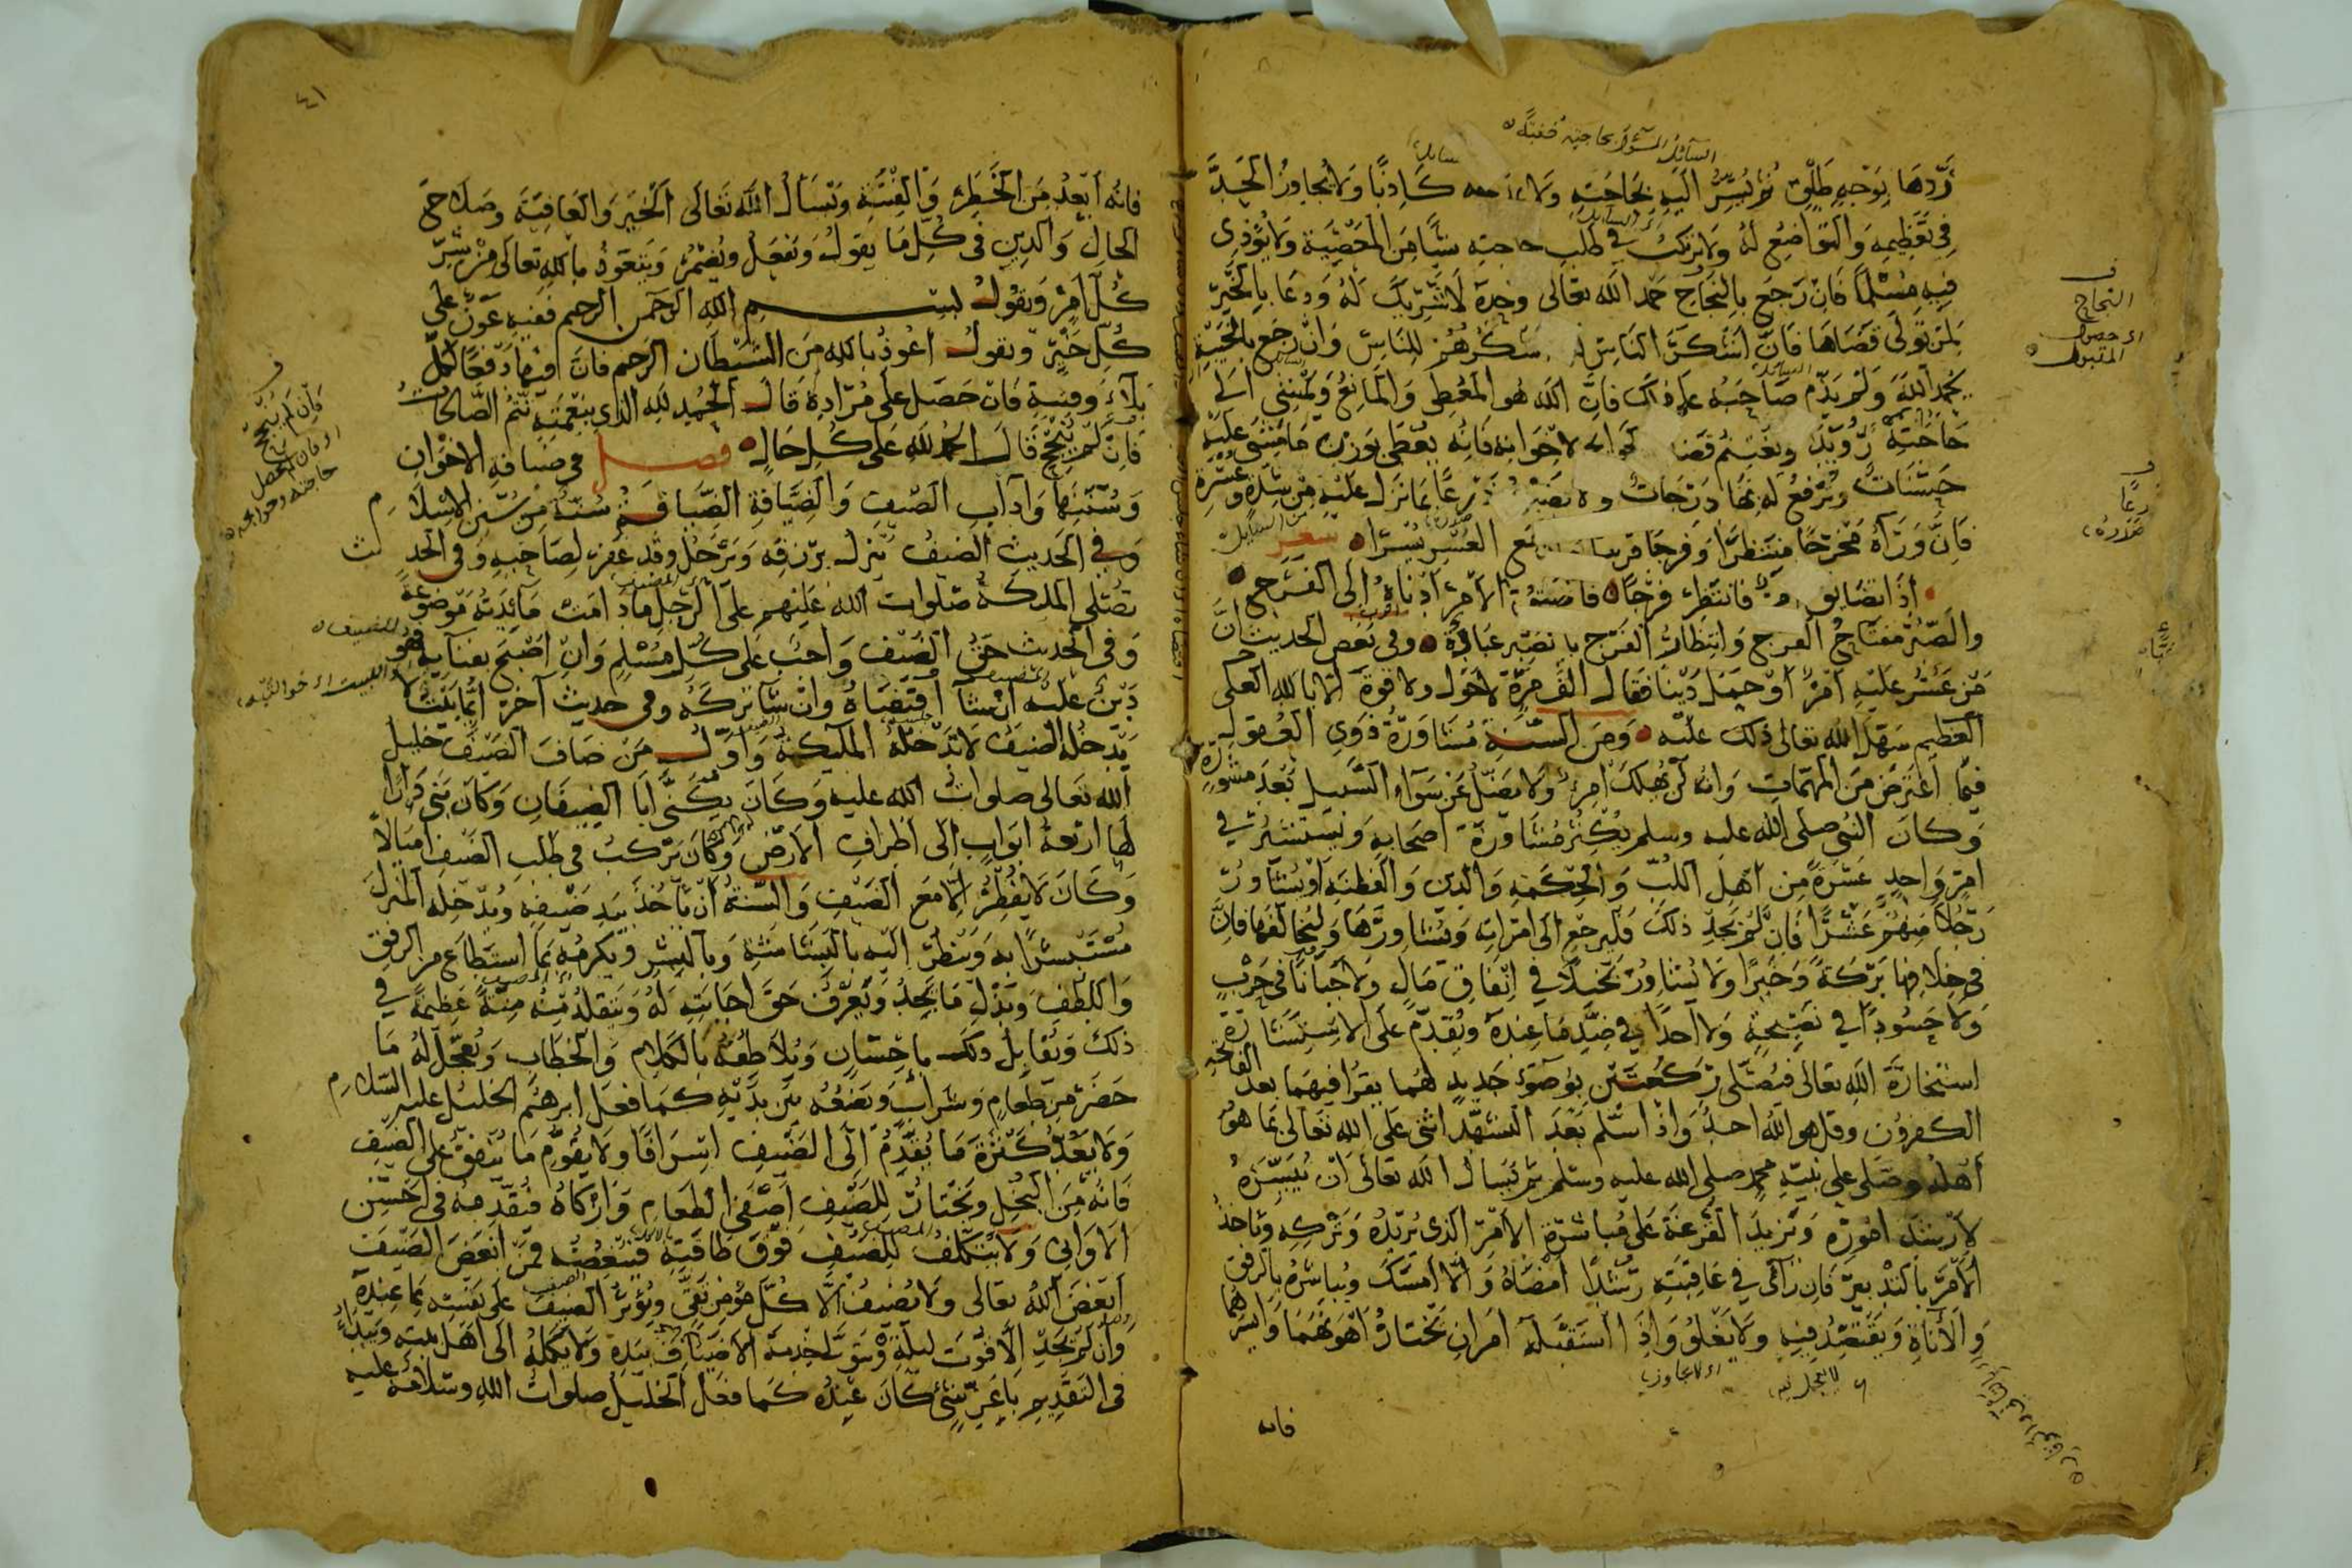 السائل المسؤل بحاجته خفية
رَدِّهَا بِوَجْهٍ طَلْقٍ ثُمَّ يُسِرُّ اليَهِ بِحَاجَتِهِ وَلَا كَاذِبًا وَلَا يُجَاوِزُ الْحَدَّ
فِي تَعْظِيمِهِ وَالتَّوَاضُعِ لَهُ وَلَا يَرْتَكِبُ فِي طَلَبِ حَاجَتِهِ شَيْئًا مِنَ الْمَعْصِيَةِ وَلَا يُؤْذِي
فِيهِ مُسْلِمًا فَاِنْ رَجَعَ بِالنَّجَاحِ حَمِدَ اللهَ تعَالَى وَحْدَهُ لَا شَرِيكَ لَهُ وَدَعَا بِالْخَيْرِ
لِمَنْ تَوَلَّى قَضَاهَا فَاِنَّ اَشْكَرَ النَّاسِ اَشْكَرُهُمْ لِلنَّاسِ وَاِنْ رَجَعَ بِالْخَيْبَةِ
يَحْمَدُ اللهَ وَلَمْ يَذُمَّ صَاحِبَهُ عَلَى ذَلكَ فَاِنَّ اللهَ هُوَ الْمُعْطِي وَالْمَانِعُ وَيَمْشِي اِلَى
حَاجَتِهِ رُوَيْدًا وَيَغْتَنِمُ قضَا لاِخْوَانِهِ فَاِنَّهُ يُعْطَى بِوَزْنِ مَا مَشَى عَلَيْهِ
حَسَنَاتٌ وَيُرْفَعُ لَهُ بِهَا دَرَجَاتٌ وَلَا يَضِيقُ ذَرْعًا بِمَا نَزَلَ عَلَيْهِ مِنْ شِدَّةٍ وَعُسْرَةٍ
فَاِنَّ وَرَآهُ مَخْرَجًا مُنْتَظَرًا وَفَرَجًا قَرِيبًا مَعَ الْعُسْرِ يُسْرًا شعر
اِذَا تَضَايَقَ اَمْرٌ فَانْتَظِرْ فَرَجًا فَاَضْيَقُ الْاَمْرِ اَدْنَاهُ اِلَى الْفَرَجِ
وَالصَّبْرُ مِفْتَاحُ الْفَرَجِ وَانْتِظَارُ الْفَرَجِ بِالصَّبْرِ عِبَادَةٌ وَفِي بَعْضِ الْحَدِيثِ اَنَّ
مَنْ عَسُرَ عَلَيْهِ اَمْرٌ اَوْ حَمَلَ دَيْنًا فَقَالَ اَلْفَ مَرَّةٍ لَاحَوْلَ وَلَا قُوَّةَ اِلَّا بِاللهِ الْعَلِيِّ
الْعَظِيمِ سَهَّلَ اللهُ تعَالَى ذَلكَ عَلَيْهِ وَمِنَ السُّنَّةِ مُشَاوَرَةُ ذَوِي الْعُقُولِ
فِيمَا اعْتَرَضَ مِنَ الْمُهِمَّاتِ وَاِنَّهُ لَنْ يَهْلِكَ امْرِئٌ وَلَا يَضِلُّ عَنْ سَوَآءِ السَّبِيلِ بَعْدَ مَشُورَةٍ
وَكَانَ النَّبِي صَلَّى اللهُ عَلَيْهِ وَسَلَّمَ يُكْثِرُ مُشَاوَرَةَ اَصْحَابِهِ وَيَسْتَشِيرُ فِي
اَمْرٍ وَاحِدٍ عَشَرَةً مِنْ اَهْلِ اللُّبِّ وَالْحِكْمَةِ وَالدِّينِ وَالْفِطْنَةِ اَوْ يُشَاوِرُ
رَجُلًا مِنْهُمْ عَشْرًا فَاِنْ لَمْ يَجِدْ ذَلكَ فَلْيَرْجِعْ اِلَى امْرَاَتِهِ وَيُشَاوِرْهَا وَلْيُخَالِفْهَا فَاِنَّ
فِي خِلَافِهَا بَرَكَةً وَخَيْرًا وَلَا يُشَاوِرُ بَخِيلًا فِي اِنْفَاقِ مَالٍ وَلَا جَبَانًا فِي حَرْبٍ
وَلَا حَسُودًا فِي نَصِيحَةٍ وَلَا اَحَدًا فِي ضِدِّ مَا عِنْدَهُ وَيُقَدِّمُ عَلَى الْاِسْتِشَارَةِ
اسْتِخَارَةَ اللهِ تعَالَى فَيُصَلِّي رَكْعَتَيْنِ بِوُضُوءٍ جَدِيدٍ لَهُمَا يَقْرَأُ فِيهِمَا بَعْدَ الْفَاتِحَةِ
الكفرون وقل هو اللهُ احد وَاِذَا سَلَّمَ بَعْدَ التَّشَهُّدِ اَثْنَى عَلَى اللهِ تَعَالَى بِمَا هُوَ
اَهْلُهُ وَصَلَّى عَلَى نَبِيِّهِ مُحَمَّدٍ صلى الله عليه وسلم ثُمَّ يَسْاَلُ الله تعَالَى اَنْ يُيَسِّرَهُ
لِاَرْشَدِ اُمُورِهِ وَتَرْكِهِ وَيَاخُذُ
الْاَمْرَ بِالتَّدْبِيرِ فَاِنْ رَأى فِي عَاقِبَتِهِ رُشْدًا اَمْضَاهُ وَاِلَّا اَمْسَكَ وَيُبَاشِرُهُ بِالرِّفْقِ
وَالْاَنَاةِ وَيَقْتَصِدُ فِيهِ وَلَا يَغْلُو وَاِذَا اسْتَقْبَلَهُ اَمْرَانِ يَخْتَارُ اَهْوَنَهُمَا وَاَيْسَرَهُمَا
فانه
النجاح
اى حصول
المقبول
ذرعًا
صَدره
٤١
فَاِنَّهُ اَبْعَدُ مِنَ الْخَطَرِ وَالْفِتْنَةِ وَيَسْاَلُ اللهَ تَعَالَى الْخَيْرَ وَالْعَافِيَةَ وَصَلَاحَ
الْحَالِ وَالدِّينِ فِي كُلِّ مَا يَقُولُ وَيَفْعَلُ وَيُضْمِرُ وَيَتَعَوَّذُ بِاللهِ تعَالَى مِنْ شَرِّ
كُلِّ اَمْرٍ وَيَقُولُ بسم اللهِ الرحمن الرحيم فَفِيهِ عَوْنٌ عَلَى
كُلِّ خَيْرٍ وَيَقُولُ اَعُوذُ بِاللهِ مِنَ الشَّيْطَانِ الرجيم فَاِنَّ فِيهَا دَفْعًا لِكُلِّ
بَلَآءٍ وَفِتْنَةٍ فَاِنْ حَصَلَ عَلَى مُرَادِهِ قَالَ الْحَمْدُ لِلّهِ الَّذِي بِنِعْمَتِهِ تَتِمُّ الصَّالِحَاتُ
فَاِنْ لَمْ يُنْجَحْ قَالَ الْحَمْدُ لِلّهِ عَلَى كُلِّ حَالٍ فصل في ضيافةِ الْاِخْوَانِ
وَسُنَنِهَا وَآدَابِ الضَّيْفِ وَالضِّيَافَةِ الضِّيَافَةُ سُنَّةٌ مِنْ سُنَنِ الْاِسْلَامِ
وَفِي الْحَدِيثِ الضَّيْفُ يَنْزِلُ بِرِزْقِهِ وَيَرْحَلُ وَقَدْ غُفِرَ لِصَاحِبِهِ وَفِي الْحَدِيث
تُصَلِّي الْمَلائكةُ صَلَوَاتُ اللهِ عَلَيْهِمْ عَلَى الرَّجُلِ مَا دَامَتْ مَآئِدَتُهُ مَوْضُوعَةً
وَفِي الْحَدِيثِ حَقُّ الضَّيْفِ وَاجِبٌ عَلَى كُلِّ مُسْلِمٍ وَاِنْ اَصْبَحَ بِفِنَآئِهِ فَهُوَ
دَيْنٌ عَلَيْهِ اِنْ شَآءَ اقْتَضَاهُ وَاِنْ شَآءَ تَرَكَهُ وَفِي حَدِيثٍ آخَرَ اَيُّمَا بَيْتٍ لَا
يَدْخُلُهُ الضَّيْفُ لَا تَدْخُلُهُ الْمَلآئِكَةُ وَاَوَّلُ مَنْ ضَافَ الضَّيْفَ خَلِيلُ
اللهِ تَعَالَى صَلَوَاتُ اللهِ عَلَيْهِ وَكَانَ يُكَنَّى اَبَا الضِّيفَانِ وَكَانَ بَنَى دَارًا
لَهَا اَرْبَعَةُ اَبْوَابٍ اِلَى اَطْرَافِ الْاَرْضِ وَكَانَ يَرْكَبُ فِي طَلَبِ الضَّيْفِ اَمْيَالًا
وَكَانَ لَا يُفْطِرُ اِلَّا مَعَ الضَّيْفِ وَالسُّنَّةُ اَنْ يَاْخُذَ بِيَدِ ضَيْفِهِ وَيُدْخِلَهُ الْمَنْزِلَ
مُسْتَبْشِرًا بِهِ وَيَنْظُرَ اِلَيْهِ بِالْبَشَاشَةِ وَبِالْبِشْرِ وَيُكْرِمُهُ بِمَا اسْتَطَاعَ مِنَ الرِّفْقِ
وَاللُّطْفِ وَبَذْلِ مَا يَجِدُ وَيَعْرِفُ حَقَّ اِجَابَتِهِ لَهُ وَيَتَقَلَّدُ مِنْهُ مِنَّةً عَظِيمَةً فِي
ذَلكَ وَيُقَابِلُ ذَلكَ بِاِحْسَانٍ وَيُلَاطِفُهُ بِالْكَلَامِ وَالْخِطَابِ وَيُعَجِّلُ لَهُ مَا
حَضَرَ مِنْ طَعَامٍ وَشَرَابٍ وَيَضَعُهُ بَيْنَ يَدَيْهِ كَمَا فَعَلَ اِبْرهِيمُ الْخَلِيلُ عَلَيْهِ السَّلَام
وَلَا يَعُدُّ كَثْرَةَ مَا يُقَدِّمُ اِلَى الضَّيْفِ اِسْرَافًا وَلَا يُقَوِّمُ مَا يُنْفِقُ عَلَى الضَّيْفِ
فَاِنَّهُ مِنَ الْبُخْلِ وَيَخْتَارُ لِلضَّيْفِ اَصْفَى الطَّعَامِ وَاَزْكَاهُ فَيُقَدِّمُهُ فِي اَحْسَنِ
الْاَوَانِي وَلَا يَتَكَلَّفُ لِلضَّيْفِ فَوْقَ طَاقَتِهِ فَيُبْغِضُهُ فَمَنْ اَبْغَضَ الضَّيْفَ
اَبْغَضَ اللهُ تعَالَى وَلَا يُضِيفُ اِلَّا كُلَّ مُؤْمِنٍ تَقِيٍّ وَيُؤْثِرُ الضَّيْفَ عَلَى نَفْسِهِ بِمَا عِنْدَهُ
وَاِنْ لَمْ يَجِدْ اِلَّا قُوتَ لَيْلَةٍ وَيَتَوَلَّى خِدْمَةَ الْاَضْيَافِ بِيَدِهِ وَلَا يَكِلُهُ اِلَى اَهْلِ بَيْتِهِ وَيَبْدَأُ
فِي التَّقْدِيمِ بِاَيِّ شَيْءٍ كَانَ عِنْدَهُ كَمَا فَعَلَ الْخَلِيلُ صَلَوَاتُ اللهِ وَسَلَامُهُ عَلَيْهِ
فَاِنْ لَمْ يُنْجَحْ
اى فان لم يحصل
حاجته
للضيف